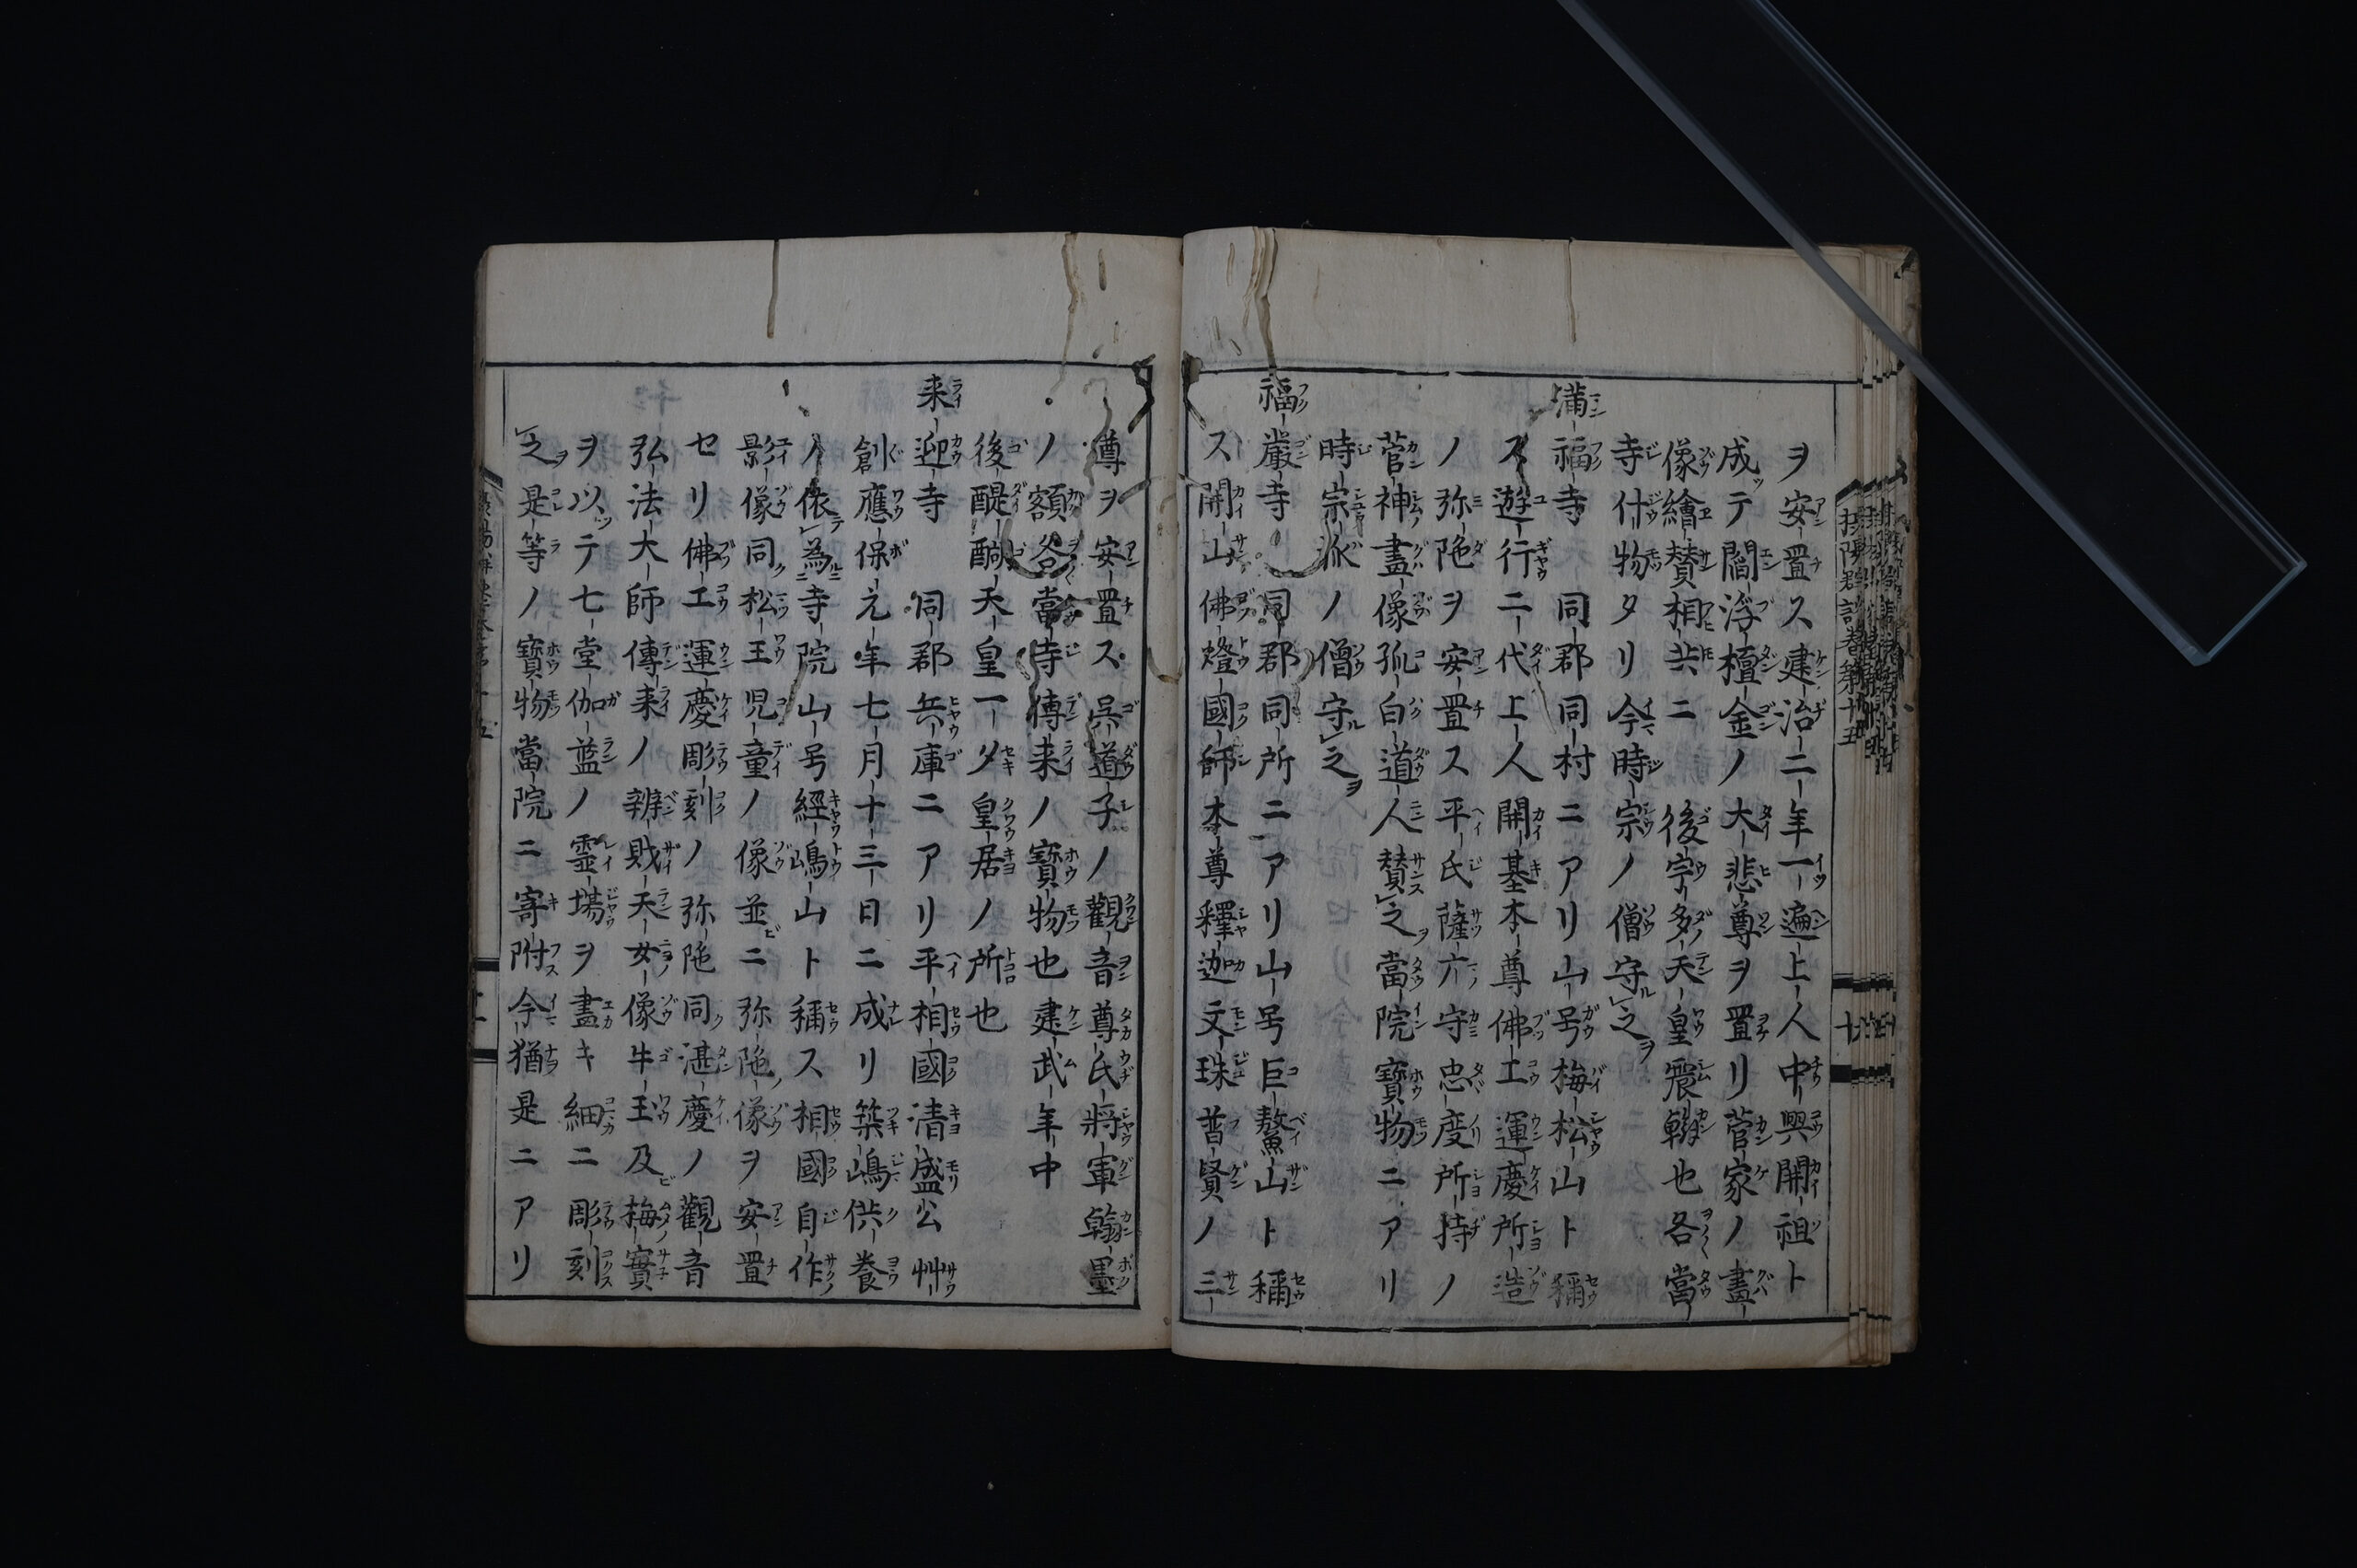 ヲ安置ス建治二年一遍上人中興開祖ト
成テ閻浮檀金ノ大悲尊ヲ置リ菅家ノ畫
像繪賛相共ニ後宇多天皇震翰也各當
寺什物タリ今時宗ノ僧守之
満福寺 同郡同村ニアリ山号梅松山ト稱
ス遊行二代上人開基本尊佛工運慶所造
ノ弥陁ヲ安置ス平氏薩六守忠度所持ノ
菅神畫像孤白道人賛之當院寶物ニアリ
時宗派ノ僧守之
福嚴寺 同郡同所ニアリ山号巨鰲山ト稱
ス開山佛燈國師本尊釋迦文珠普賢ノ三
尊ヲ安置ス呉道子ノ觀音尊氏將軍翰墨
ノ額各當寺傳来ノ寶物也建武年中
後醍醐天皇一夕皇居ノ所也
来迎寺 同郡兵庫ニアリ平相國清盛公艸
創應保元年七月十三日ニ成リ築嶋供養
ノ依為寺院山号經嶋山ト稱ス相國自作
影像同松王児童ノ像並ニ弥陁像ヲ安置
セリ佛工運慶彫刻ノ弥陁同湛慶ノ觀音
弘法大師傳来ノ辨財天女像牛王及梅實
ヲ以テ七堂伽藍ノ霊場ヲ畫キ細ニ彫刻
之是等ノ寶物當院ニ寄附今猶是ニアリ